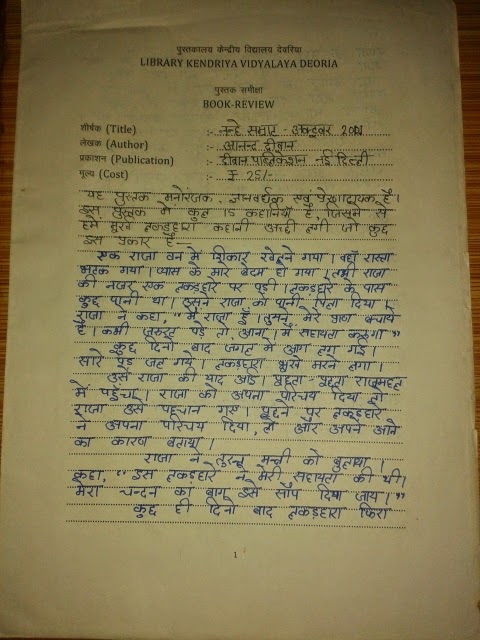 पुस्तकालय केन्द्रीय विद्यालय देवरिया
LIBRARY KENDRIYA VIDYALAYA DEORIA
पुस्तक समीक्षा
BOOK-REVIEW
शीर्षक (Title) :- नन्हे सम्राट - अक्टूबर
लेखक (Author) :- आनन्द दीवान
प्रकाशन (Publication) :- दीवान पब्लिकेशन नई दिल्ली
मूल्य (Cost) :- ₹ 25/-
यह पुस्तक मनोरंजक, ज्ञानवर्धक एवं प्रेरणादायक है।
इस पुस्तक में कुल 15 कहानियाँ है, जिसमे से
हमे मुझे लकड़हारा कहानी अच्छी लगी जो कुछ
इस प्रकार है -
एक राजा वन में शिकार खेलने गया। वहाँ रास्ता
भटक गया। प्यास के मारे बेदम हो गया। तभी राजा
की नजर एक लकड़हारे पर पड़ी। लकड़हारे के पास
कुछ पानी था। उसने राजा को पानी पिला दिया।
राजा ने कहा, "मैं राजा हूँ। तुमने मेरे प्राण बचाये
है। कभी जरूरत पड़े तो आना। मैं सहायता करूंगा"
कुछ दिनो बाद जंगल मे आग लग गई।
सारे पेड़ जल गये। लकड़हारा भूखे मरने लगा।
उसे राजा की याद आई। पूछता-पूछता राजमहल
में पहुँचा। राजा को अपना परिचय दिया तो
राजा उसे पहचान गए। पूछने पर लकड़हारे
ने अपना परिचय दिया, तो और अपने आने
का कारण बताया।
राजा ने तुरन्त मन्त्री को बुलाया।
कहा, "इस लकड़हारे ने मेरी सहायता की थी।
मेरा चन्दन का बाग इसे सौंप दिया जाय।"
कुछ ही दिनो बाद लकड़हारा फिर
1